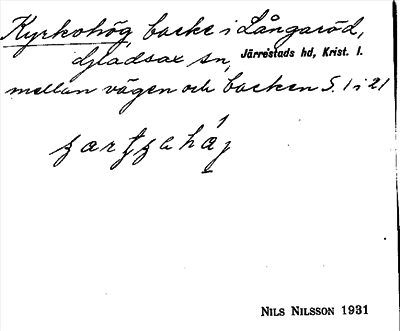 Kyrkohög, backe i Långaröd,
Gladsax sn, Järrestads hd, Krist. l.
mellan vägen och backen S. 1 i 21
NILS NILSSON 1931